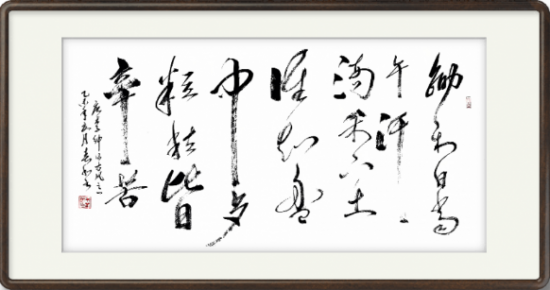 锄禾日当
午汗
滴禾下土
谁知盘
中
粒粒皆
辛苦
唐李绅